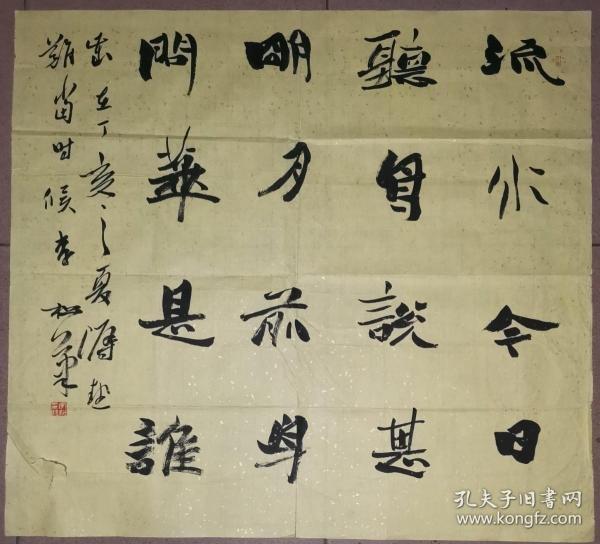 流水今日
聽說甚
明月前身
問華是誰
歲在丁亥之夏
難當时候李松筆
孔夫子旧书网
www.kongfz.com